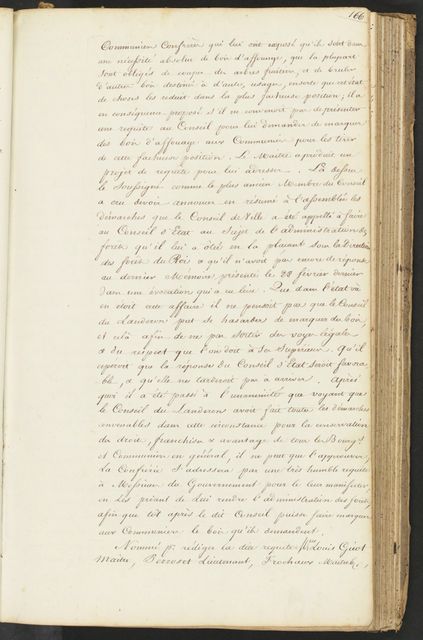 166
Communiers Confrères qui lui ont exposé qu'ils sont dans
une nécessité absolue de bois d'affouage, que la plupart
sont obligés de couper des arbres fruitiers, et de bruler
d'autres bois destinés à d'autres usages, ensorte que cet état
de choses les réduit dans la plus facheuse position; il a
en conséquence proposé s'il ne convenoit pas de présenter
une requête au Conseil pour lui demander de marquer
des bois d'affouage aux Communiers pour les tirer
de cette facheuse position. Le Maitre a produit un
projet de requête pour lui adresser. Là dessus
le Soussigné comme le plus ancien Membre du Conseil
a cru devoir annoncer en résumé à l'assemblée les
démarches que le Conseil de Ville a été appellé à faire
au Conseil d'Etat au Sujet de l'administration des
forêts qu'il lui a ôtée en la plaçant sous la Direction
des forêts du Roi & qu'il n'avoit pas encore de réponse
au dernier Mémoire présenté le 28 février dernier
dans une évocation qui a eu lieu. Que dans l'état où
en étoit cette affaire il ne pensoit pas que le Conseil
du Landeron put se hasarder de marquer du bois
et celà afin de ne pas sortir des voyes légales
& du respect que l'on doit à son Supérieur. Qu'il
espéroit que la réponse du Conseil d'Etat seroit favora
ble, & qu'elle ne tarderoit pas à arriver. Après
quoi il a été passé à l'unanimité que voyant que
le Conseil du Landeron avoit fait toutes les démarches
convenables dans cette circonstance pour la conservation
des droits, franchises & avantages de tous les Bourgs
et Communiers en général, il ne peut que l'approuver,
La Confrérie s'adressera par une très humble requête
à Messieurs du Gouvernement pour le leur manifester
en les priant de leur rendre l'administration des forêts,
afin que tôt après le dit Conseil puisse faire marquer
aux Communiers le bois qu'ils demandent.
Nommé pr. rédiger la dite requête Louis Gicot
Maitre, Perroset Lieutenant, Frochaux